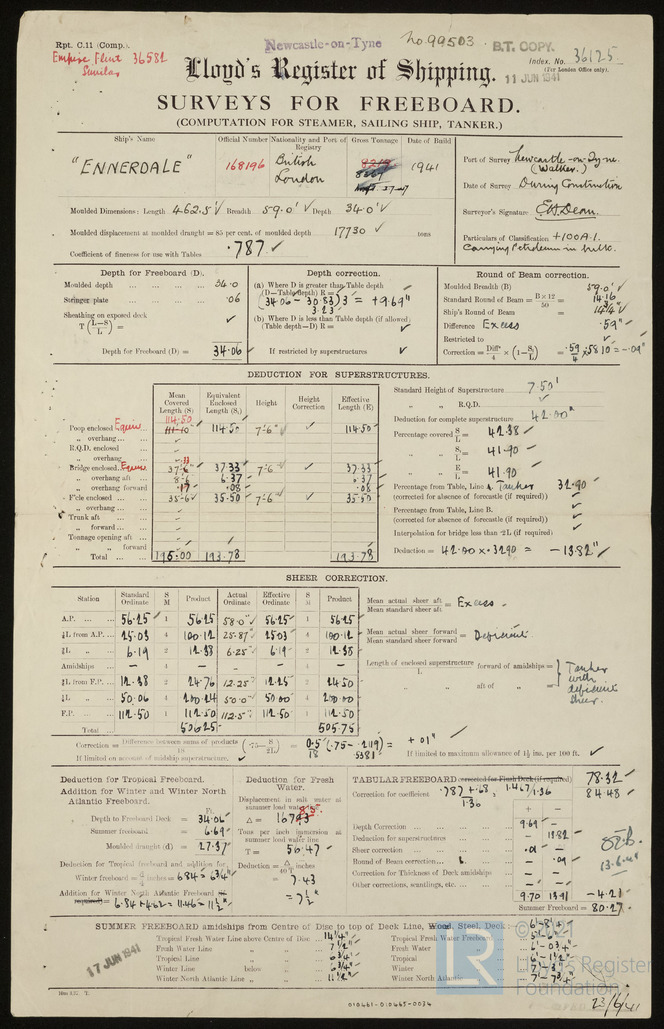 Rpt. C.11 (Comp.).
Newcastle-on-Tyne
No. 99503.
B.T. COPY.
Empire Flint 36581
Similar
Index. No. 36125
(For London Office only).
11 JUN 1941
Lloyd's Register of Shipping.
SURVEYS FOR FREEBOARD.
(COMPUTATION FOR STEAMER, SAILING SHIP, TANKER.)
Ship's Name
Official Number
Nationality and Port of Registry
Gross Tonnage
Date of Build
"ENNERDALE"
168196
British London
8219
1941
Port of Survey Newcastle-on-Tyne. (Walker.)
Date of Survey During Construction
Surveyor's Signature
Particulars of Classification +100A.1. Carrying Petroleum in bulk.
Moulded Dimensions: Length 462.5 Breadth 59.0' Depth 34.0'
Moulded displacement at moulded draught = 85 per cent. of moulded depth 17730 tons
Coefficient of fineness for use with Tables .787
Depth for Freeboard (D).
Moulded depth 34.0
Stringer plate .06
Sheathing on exposed deck
T (L-S/L) =
Depth for Freeboard (D) = 34.06
Depth correction.
(a) Where D is greater than Table depth
(D—Table depth) R =
(34.06 - 30.83) 3 = +9.69"
3.23
(b) Where D is less than Table depth (if allowed)
(Table depth—D) R =
If restricted by superstructures
Round of Beam correction.
Moulded Breadth (B) 59.0'
Standard Round of Beam = B×12/50 = 14.16
Ship's Round of Beam = 14¾"
Difference Excess .59"
Restricted to
Correction = Diff/4 × (1-S/L) = .59/4 × .5810 = -.09"
DEDUCTION FOR SUPERSTRUCTURES.
Mean Covered Length (S)
Equivalent Enclosed Length (S₁)
Height
Height Correction
Effective Length (E)
114.50
Poop enclosed Equiv. 111-10 114.50 7'-6" 114.50
„ overhang
R.Q.D. enclosed
„ overhang
Bridge enclosed Equiv. 37'-6" 37.33 7'-6" 37.33
„ overhang aft 8'-6 6.37 6.37
„ overhang forward .17 .08 .08
F'cle enclosed 35-6 35.50 7'-6" 35.50
„ overhang
Trunk aft
„ forward
Tonnage opening aft
„ „ forward
Total 195.00 193.78 193.78
Standard Height of Superstructure 7.50'
„ „ R.Q.D.
Deduction for complete superstructure 42.00"
Percentage covered S/L = 42.38
„ „ S₁/L = 41.90
„ „ E/L = 41.90
Percentage from Table, Line Tanker 32.90
(corrected for absence of forecastle (if required))
Percentage from Table, Line B.
(corrected for absence of forecastle (if required))
Interpolation for bridge less than ·2L (if required)
Deduction = 42.00 × .3290 = -13.82"
SHEER CORRECTION.
Station
Standard Ordinate
S M
Product
Actual Ordinate
Effective Ordinate
S M
Product
A.P. 56.25 1 56.25 58.0" 56.25 1 56.25
⅙L from A.P. 25.03 4 100.12 25.87" 25.03 4 100.12
⅓L „ 6.19 2 12.38 6.25" 6.19 2 12.38
Amidships - 4 - - - 4 -
⅓L from F.P. 12.38 2 24.76 12.25" 12.25 2 24.50
⅙L „ 50.06 4 200.24 50.0" 50.00 4 200.00
F.P. 112.50 1 112.50 112.5" 112.50 1 112.50
Total 506.25 505.75
Mean actual sheer aft / Mean standard sheer aft = Excess.
Mean actual sheer forward / Mean standard sheer forward = Deficient
Length of enclosed superstructure forward of amidships =
L
„ „ aft of „ =
Tanker with deficient sheer.
Correction = Difference between sums of products/18 (·75—S/2L) = 0.5/18 (.75-.2119) = +.01"
.5381
If limited on account of midship superstructure.
If limited to maximum allowance of 1½ ins. per 100 ft.
Deduction for Tropical Freeboard.
Addition for Winter and Winter North Atlantic Freeboard.
Ft.
Depth to Freeboard Deck = 34.06
Summer freeboard = 6.69
Moulded draught (d) = 27.37
Deduction for Tropical freeboard and addition for
Winter freeboard = d/4 inches = 6.84 = 6¾"
Addition for Winter North Atlantic Freeboard (if required) =
6.84 + 4.62 = 11.46 = 11½"
Deduction for Fresh Water.
Displacement in salt water at summer load water line
Δ =
Tons per inch immersion at summer load water line
T = 56.47
Deduction = Δ/40T inches
= 7.43
= 7½"
TABULAR FREEBOARD corrected for Flush Deck (if required) 78.32
Correction for coefficient .787 + .68 / 1.36, 1.467/1.36 84.48
+ -
Depth Correction 9.69 -
Deduction for superstructures - 13.82
Sheer correction .01 -
Round of Beam correction - .09
Correction for Thickness of Deck amidships - -
Other corrections, scantlings, etc. - -
9.70 13.91 -4.21
Summer Freeboard = 80.27
13.6.41
SUMMER FREEBOARD amidships from Centre of Disc to top of Deck Line, Wood, Steel, Deck: 6'-8¼"
Tropical Fresh Water Line above Centre of Disc 14¼"
Fresh Water Line „ „ 7½"
Tropical Line „ „ 6¾"
Winter Line below „ „ 6¾"
Winter North Atlantic Line „ „ 11½"
Tropical Fresh Water Freeboard
Fresh Water „ 6'-0¾"
Tropical „ 6'-1½"
Winter „ 7'-3"
Winter North Atlantic „ 7'-7¾"
17 JUN 1941
23/6/41
010461-010465-0034
© 2021
LR
Lloyd's Register Foundation